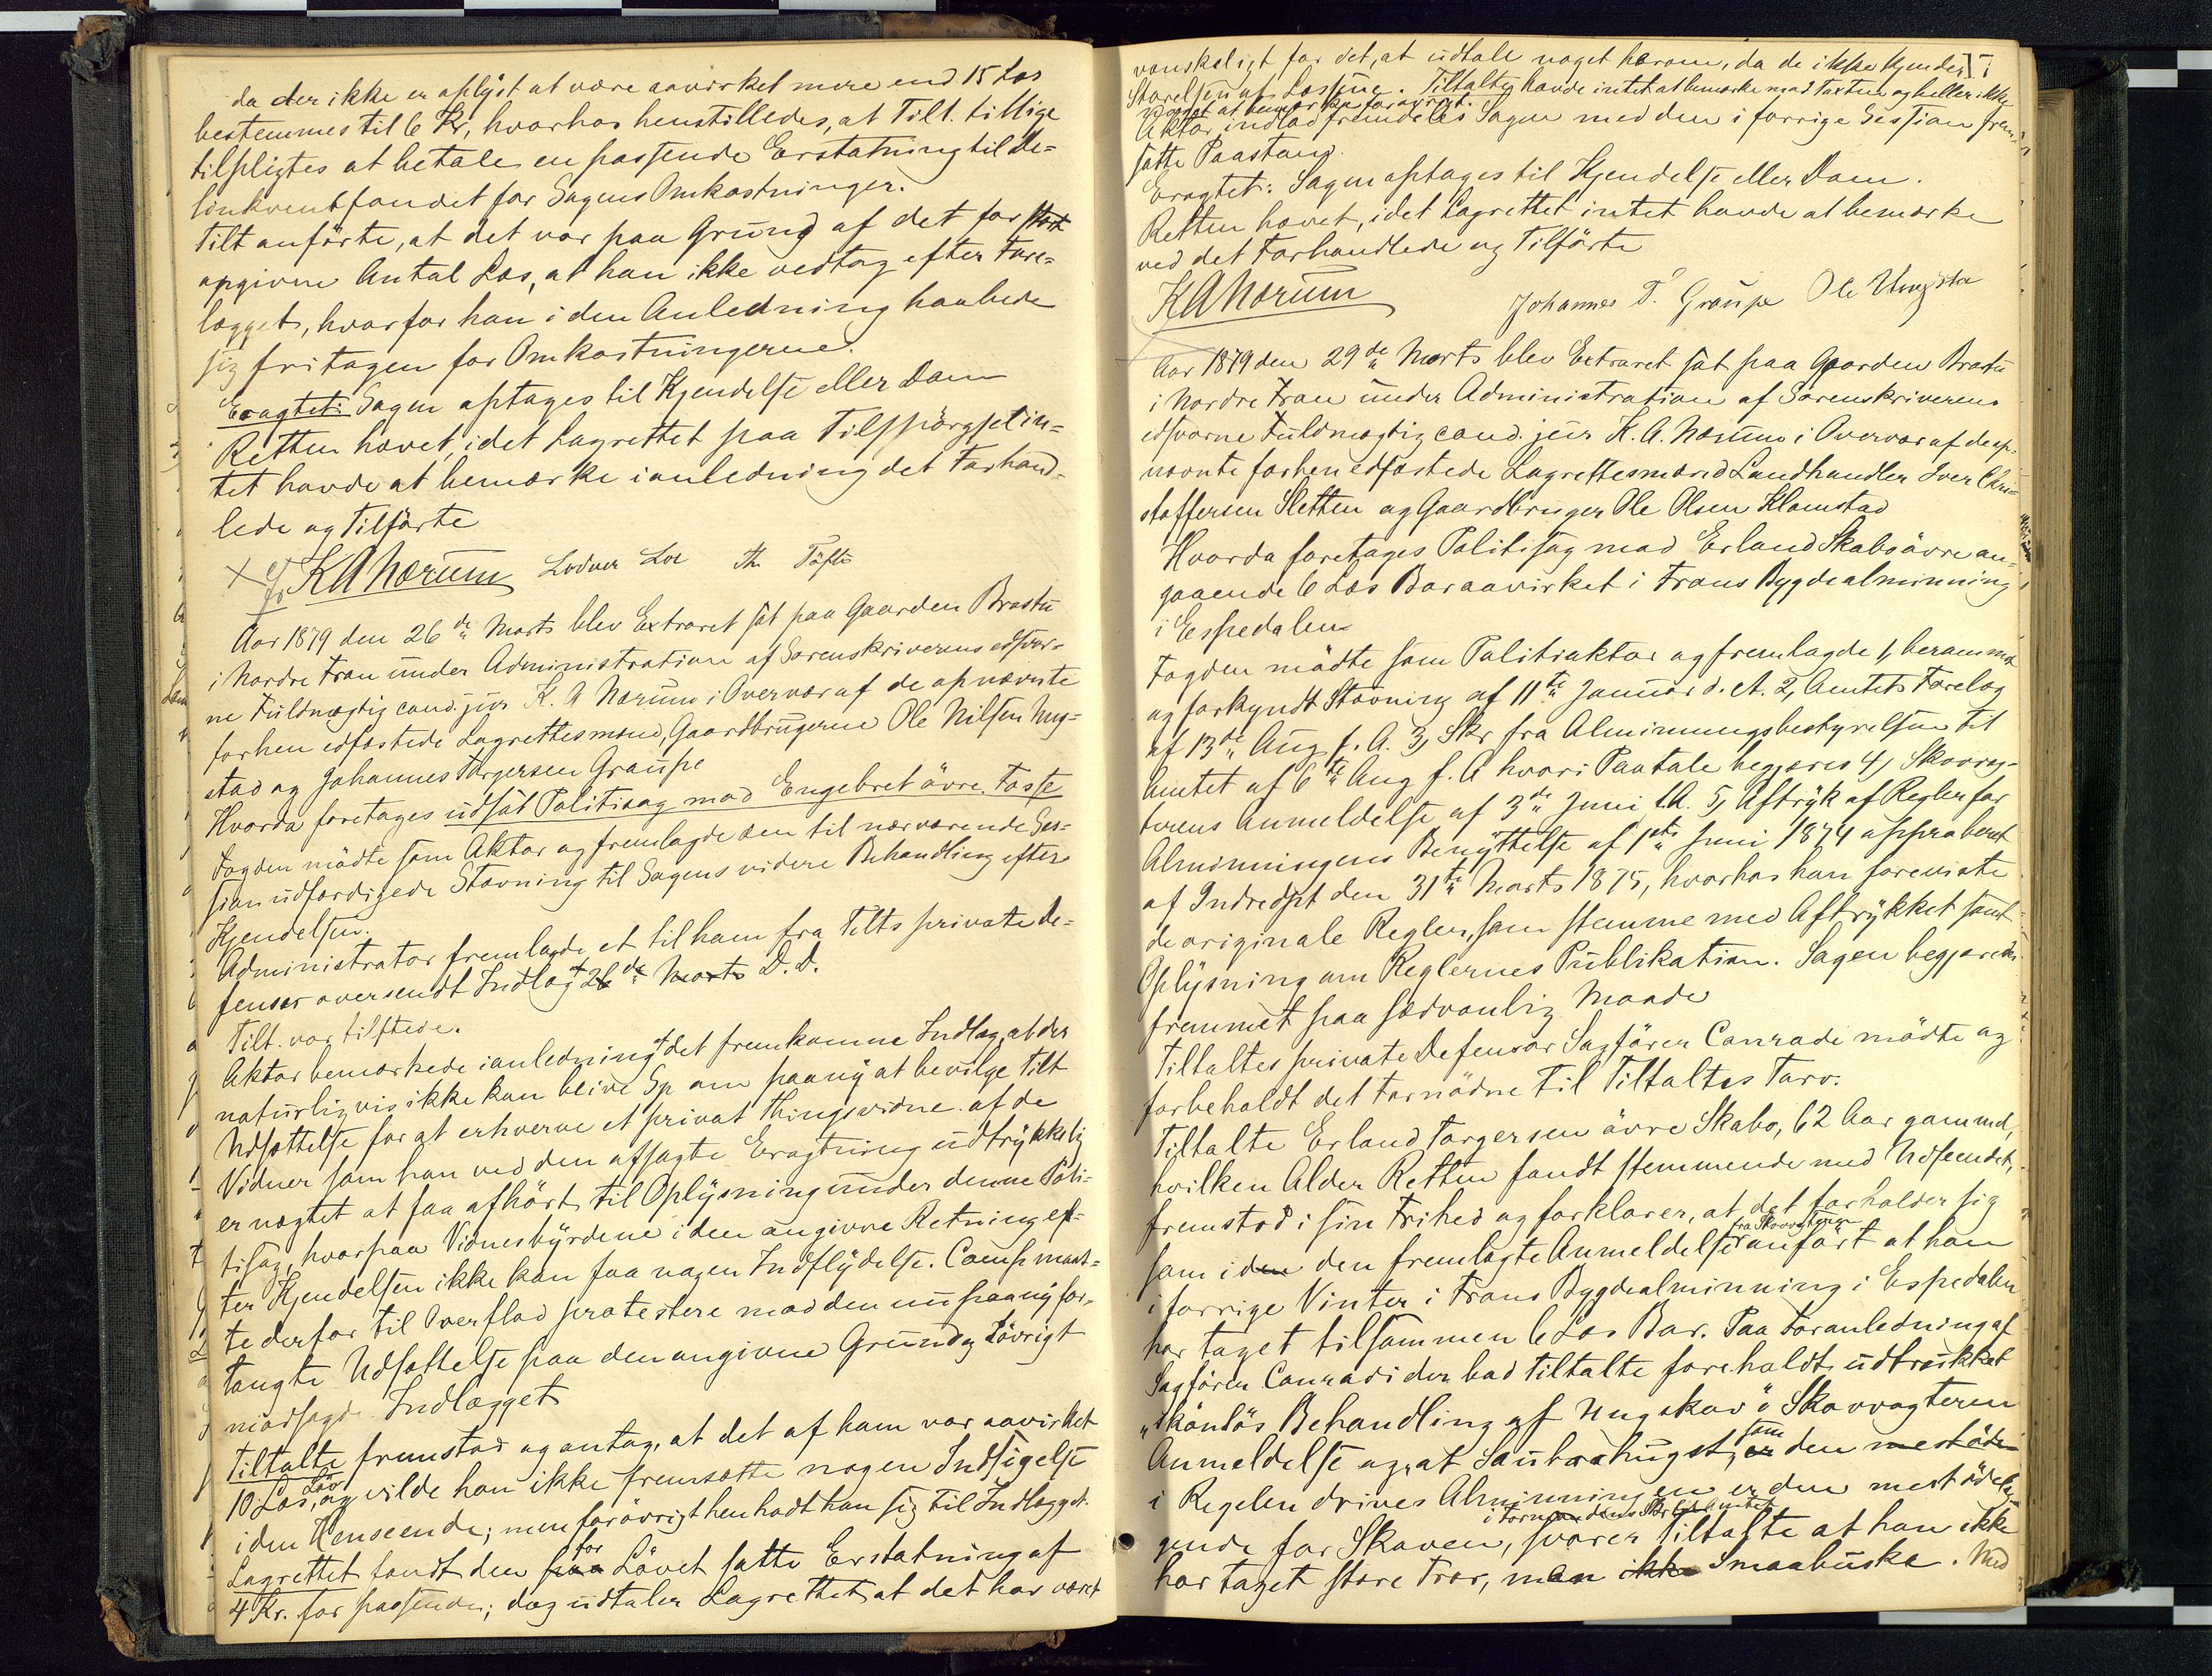 da der ikke er oplyst at være aavirket mere end 15 Læs
bestemmes til 6 Kr, hvorhos henstilledes, at Tilt. tillige
tilpligtes at betale en passende Erstatning til De-
linkventfondet for Sagens Omkostninger.
Tilt anførte, at det var paa Grund af det for stort
opgivne Antal Læs, at han ikke vedtog efter Fore-
lægget, hvorfor han i den Anledning haabede
sig fritagen for Omkostningerne.
Eragtet: Sagen optages til Kjendelse eller Dom
Retten hævet, idet Lagrettet paa Tilspørgsel in-
tet havde at bemærke i anledning det Forhand-
lede og Tilførte
KANærum Lodver Loe Th Töfte
Aar 1879 den 26de Marts blev Extraret sat paa Gaarden Brastu
i Nordre Fron under Administration af Sorenskriverens edsvor-
ne Fuldmægtig cand. jur K. A Nærum i Overvær af de opnævnte
forhen edfæstede Lagrettesmænd, Gaardbrugerne Ole Nilsen Ung-
stad og Johannes Torgersen Graupe
Hvorda foretages udsat Politisag mod Engebret övre Fosse
Fogden mødte som Aktor og fremlagde den til nærværende Ses-
sion udfærdigede Stævning til Sagens videre Behandling efter
Kjendelsen.
Administrator fremlagde et til ham fra Tilts private De-
fensor oversendt Indlæg 26de Marts D. D.
Tilt. var tilstede.
Aktor bemærkede i anledning det fremkomne Indlæg, at der
naturligvis ikke kan blive Sp om paany at bevilge Tilt
Udsættelse for at erhverve et privat Thingsvidne af de
Vidner som han ved den afsagte Eragtning udtrykkelig
er nægtet at faa afhørt til Oplysning under denne Poli-
tisag, hvorpaa Vidnesbyrdene i den angivne Retning ef-
ter Kjendelsen ikke kan faa nogen Indflydelse. Comp maat-
te derfor til Overflod protestere mod den nu paany for-
langte Udsættelse paa den angivne Grund og Iövrigt
modsagde Indlægget
Tiltalte fremstod og antog, at det af ham var aavirket
10 Læs Löv, og vilde han ikke fremsætte nogen Indsigelse
i den Henseende; men forøvrigt henholdt han sig til Indlægget.
Lagrettet fandt den for Løvet satte Erstatning af
4 Kr. for passende; dog udtaler Lagrettet at det har været
vanskeligt for det, at udtale noget herom, da de ikke kjender
Størelsen af Læssene. Tiltalte havde intet at bemærke mod Taxten og heller ikke
noget at bemærke forøvrigt.
Aktor indlod fremdeles Sagen med den i forrige Session frem-
satte Paastand.
Eragtet: Sagen optages til Kjendelse eller Dom.
Retten hævet, idet Lagrettet intet havde at bemærke
ved det Forhandlede og Tilførte
KANærum Johannes T. Graupe Ole Ungstad
Aar 1879 den 29de Marts blev Extraret sat paa Gaarden Brastu
i Nordre Fron under Administration af Sorenskriverens
edsvorne Fuldmægtig cand. jur K. A. Nærum i Overvær af de op-
nævnte forhen edfæstede Lagrettesmænd Landhandler Iver Chri-
stoffersen Sletten og Gaardbruger Ole Olsen Klomstad
Hvorda foretages Politisag mod Erland Skabo övre an-
gaaende 6 Læs Bar aavirket i Frons Bygdealminning
i Espedalen
Fogden mødte som Politiaktor og fremlagde 1, berammet
og forkyndt Stævning af 11te Januar d. A. 2, Amtets Forelæg
af 13de Aug f. A. 3, Skr fra Alminningsbestyrelsen til
Amtet af 6te Aug f. A hvori Paatale begjæres 4, Skovvog-
terens Anmeldelse af 3de Juni f.A. 5, Aftryk af Regler for
Alminningens Benyttelse af 1ste Juni 1874 approberet
af Indredpt den 31te Marts 1875, hvorhos han foreviste
de originale Regler, som stemme med Aftrykket samt
Oplysning om Reglernes Publikation. Sagen begjæredes
fremmet paa sædvanlig Maade
Tiltaltes private Defensor Sagfører Conradi mødte og
forbeholdt det fornødne til Tiltaltes Tarv.
Tiltalte Erland Torgersen övre Skabo, 62 Aar gammel,
hvilken Alder Retten fandt stemmende med Udseendet,
fremstod i sin Frihed og forklarer, at det forholder sig
som i den fremlagte Anmeldelse fra Skovvogteren anført at han
i forrige Vinter i Frons Bygdealminning i Espedalen
har taget tilsammen 6 Læs Bar. Paa Foranledning af
Sagfører Conradi der bad Tiltalte foreholdt, udtrykket
"skönlös Behandling af Ungskov" i Skovvogteren
Anmeldelse og, at Saubarhugst, som den
i Regelen drives Alminningen er den mest ödelæg-
gende for Skoven, i Formandens Skr til Amtet svarer Tiltalte at han ikke
har taget store Træer, men Smaabuske. Med